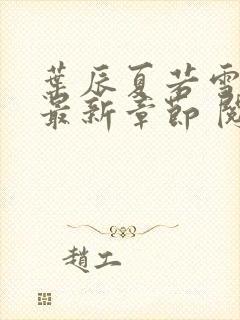 葉辰夏若雪
最新章節 閱
趙工